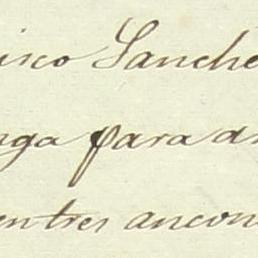 isco Sanche
nga para an
entres ancon